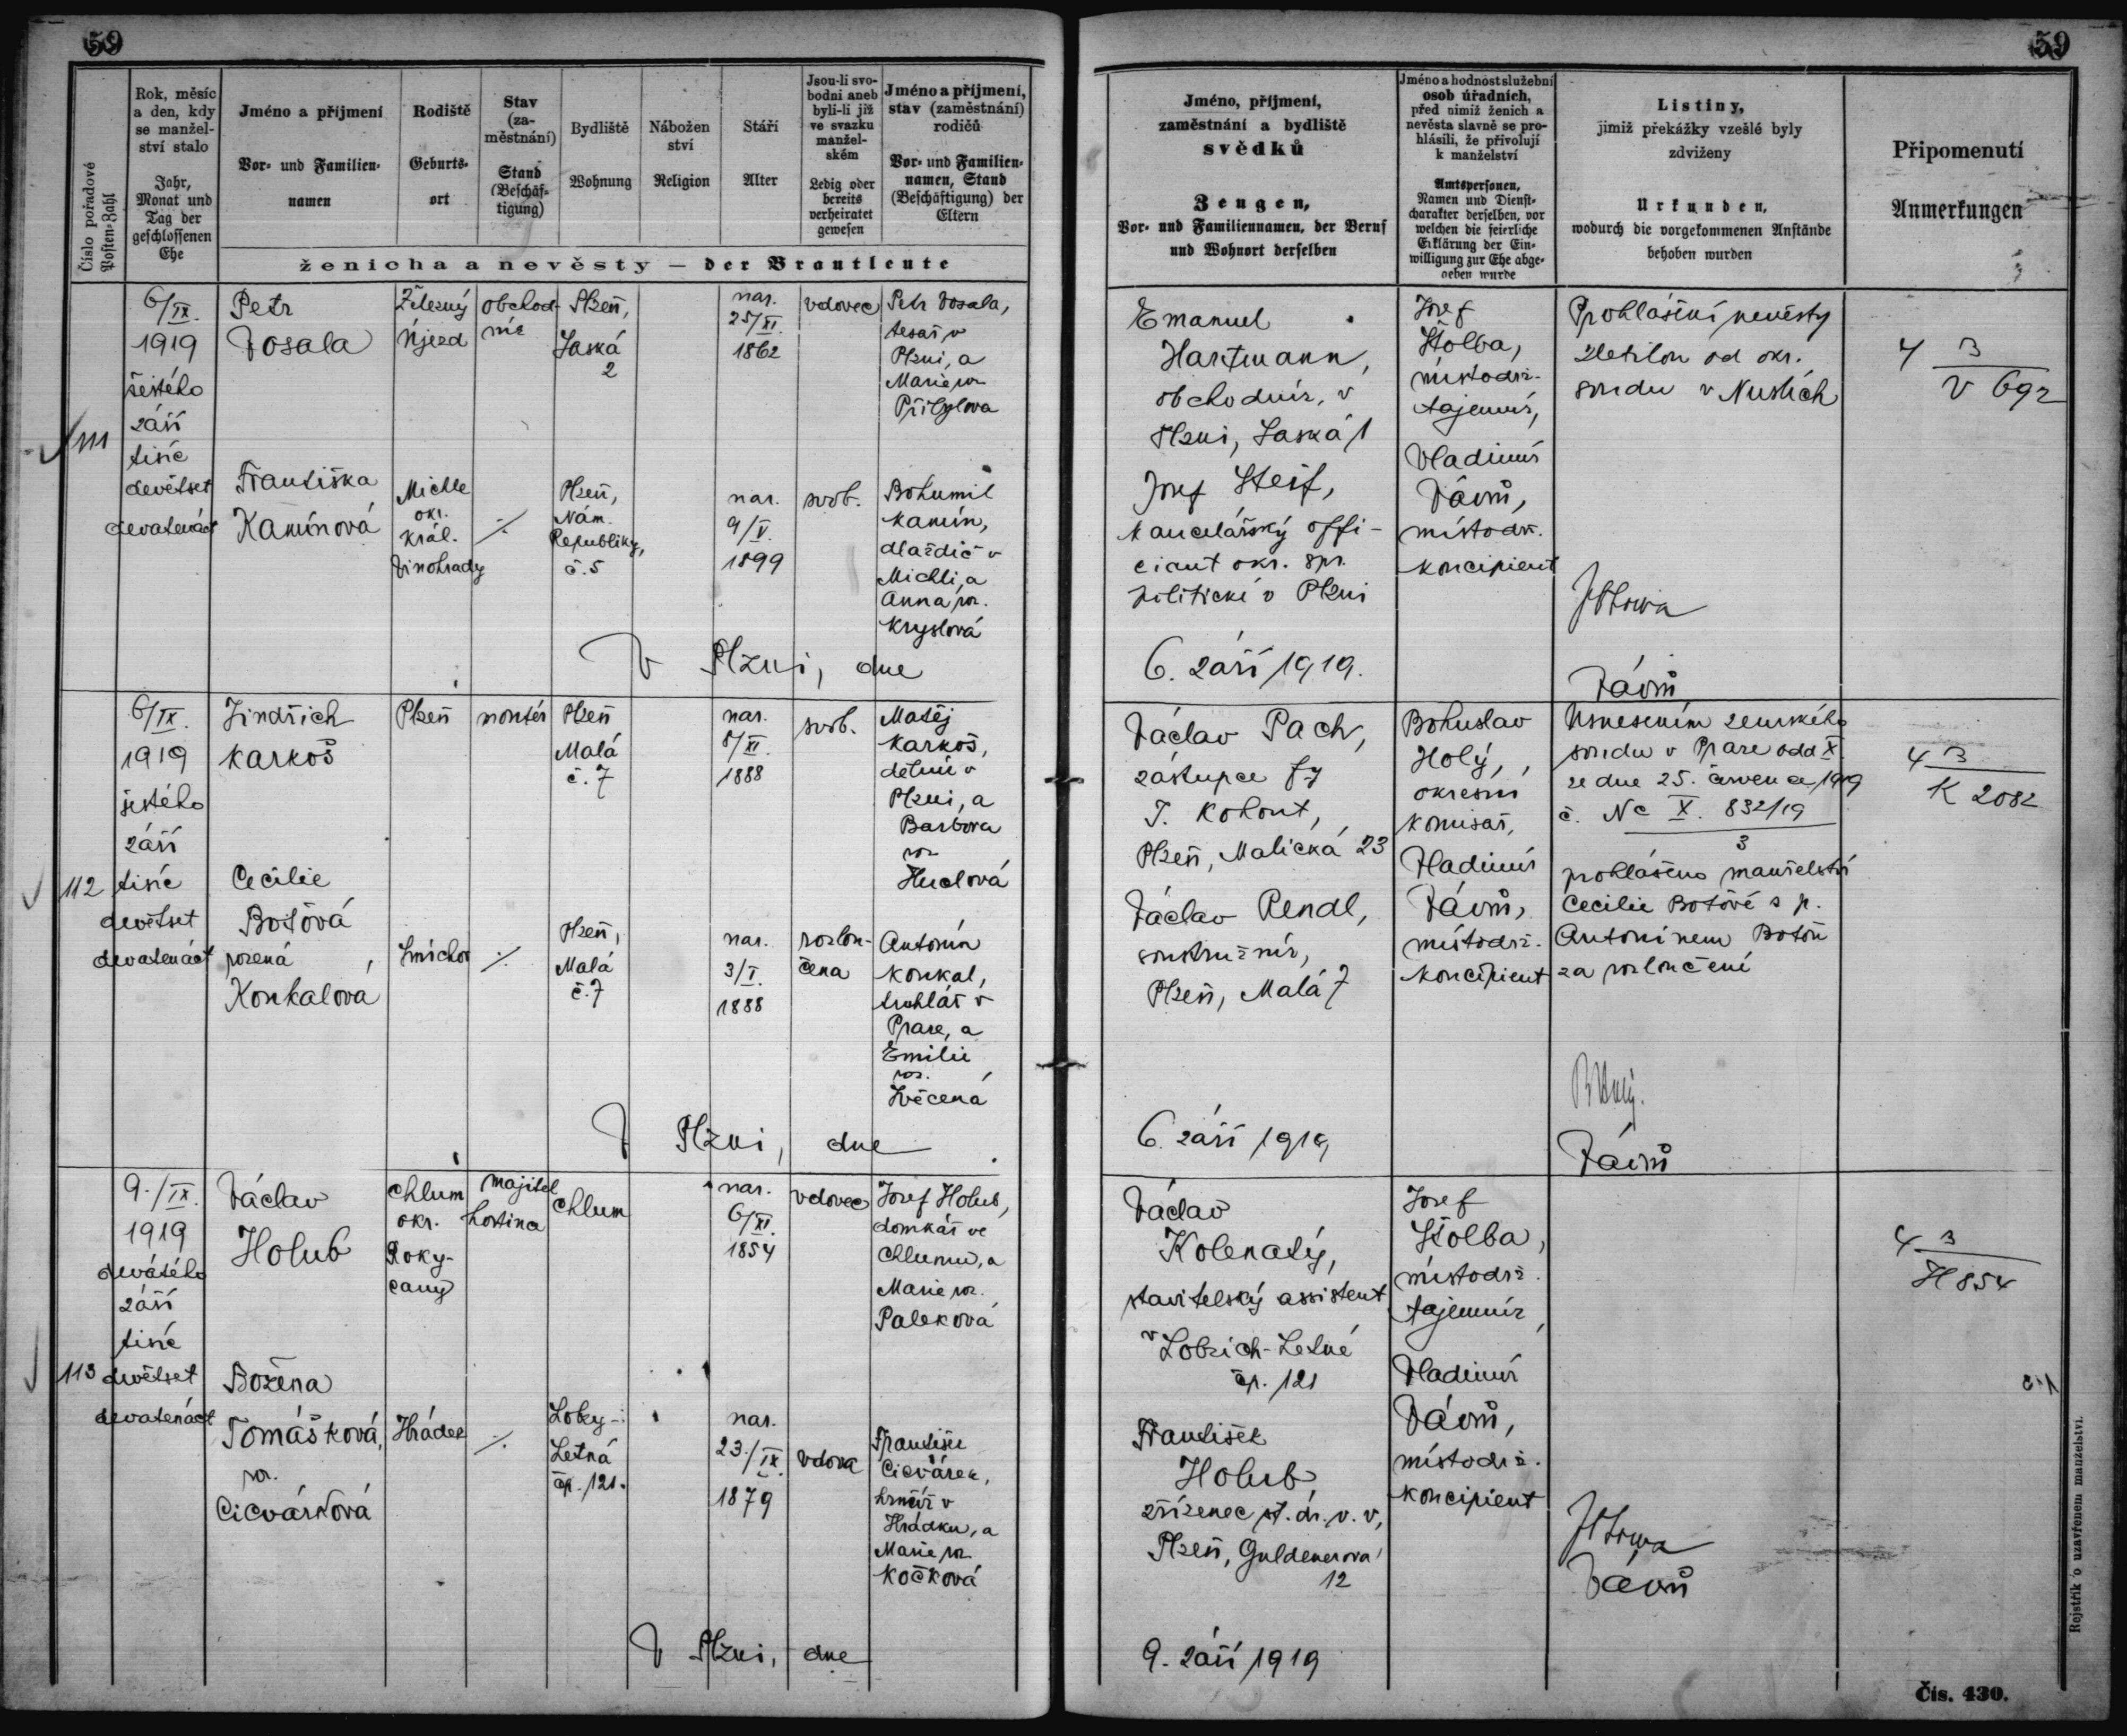 59
Číslo pořadové
Posten-Zahl
Rok, měsíc
a den, kdy
se manžel-
ství stalo
Jahr,
Monat und
Tag der
geschlossenen
Ehe
Jméno a příjmení
Vor- und Familien-
namen
Rodiště
Geburts-
ort
Stav
(za-
městnání)
Stand
(Beschäf-
tigung)
Bydliště
Wohnung
Nábožen
ství
Religion
Stáří
Alter
Jsou-li svo-
bodni aneb
byli-li již
ve svazku
manžel-
ském
Ledig oder
bereits
verheiratet
gewesen
Jméno a příjmení,
stav (zaměstnání)
rodičů
Vor- und Familien-
namen, Stand
(Beschäftigung) der
Eltern
ženicha a nevěsty — der Brautleute
111
6/IX.
1919
šestého
září
tisíc
devětset
devatenáct
Petr
Vosala
Železný
Újezd
obchod-
ník
Plzeň,
Saská
2
nar.
25/XI.
1862
vdovec
Petr Vosala,
tesař v
Plzni, a
Marie roz.
Přibylova
Františka
Kamínová
Michle
okr.
král.
Vinohrady
⁒
Plzeň,
Nám.
Republiky,
č. 5
nar.
9/V.
1899
svob.
Bohumil
Kamín,
dlaždič v
Michli, a
Anna roz.
Kryslová
V Plzni, dne
112
6/IX.
1919
šestého
září
tisíc
devětset
devatenáct
Jindřich
Karkoš
Plzeň
montér
Plzeň
Malá
č. 7
nar.
8/XI.
1888
svob.
Matěj
Karkoš,
dělník v
Plzni, a
Barbora
roz.
Hudová
Cecilie
Botová
rozená
Konkalová
Smíchov
⁒
Plzeň,
Malá
č. 7
nar.
3/I.
1888
rozlou-
čena
Antonín
Konkal,
truhlář v
Praze, a
Emilie
roz.
Svěcená
V Plzni, dne
113
9./IX.
1919
devátého
září
tisíc
devětset
devatenáct
Václav
Holub
Chlum
okr.
Roky-
cany
majitel
hostince
Chlum
nar.
6/XI.
1854
vdovec
Josef Holub,
domkář ve
Chlumu, a
Marie roz.
Paleková
Božena
Tomášková,
roz.
Cicvárková
Hrádek
⁒
Lobzy-
Letná
čp. 121.
nar.
23./IX.
1879
vdova
František
Cicvárek,
hrnčíř v
Hrádku, a
Marie roz.
Kočková
V Plzni, dne
59
Jméno, příjmení,
zaměstnání a bydliště
svědků
Zeugen,
Vor- und Familiennamen, der Beruf
und Wohnort derselben
Jméno a hodnost služební
osob úřadních,
před nimiž ženich a
nevěsta slavně se pro-
hlásili, že přivolují
k manželství
Amtspersonen,
Namen und Dienst-
charakter derselben, vor
welchen die feierliche
Erklärung der Ein-
willigung zur Ehe abge-
geben wurde
Listiny,
jimiž překážky vzešlé byly
zdviženy
Urkunden,
wodurch die vorgekommenen Anstände
behoben wurden
Připomenutí
Anmerkungen
Emanuel
Hartmann,
obchodník, v
Plzni, Saská 1
Josef Steif,
kancelářský offi-
ciant okr. spr.
politické v Plzni
6. září 1919.
Josef
Štolba,
místodrž.
tajemník,
Vladimír
Vávrů,
místodr.
koncipient
Prohlášení nevěsty
zletilou od okr.
soudu v Nuslích
Vávrů
4 3
V 692
Václav Pach,
zástupce fy
T. Kohout,
Plzeň, Malická 23
Václav Rendl,
soustružník,
Plzeň, Malá 7
6. září 1919
Bohuslav
Holý,
okresní
komisař,
Vladimír
Vávrů,
místodrž.
koncipient
Usnesením zemského
soudu v Praze odd X.
ze dne 25. července 1919
č. Nc X. 832/19
3
prohlášeno manželství
Cecilie Botové s p.
Antonínem Botou
za rozloučené
Vávrů
4 3
K 2082
Václav
Kolenatý,
stavitelský assistent
v Lobzích-Letné
čp. 121
František
Holub,
zřízenec st. dr. v. v,
Plzeň, Guldenerova
12
9. září 1919
Josef
Štolba,
místodrž.
tajemník,
Vladimír
Vávrů,
místodrž.
koncipient
Vávrů
4 3
H 854
Rejstřík o uzavřeném manželství.
Čís. 430.